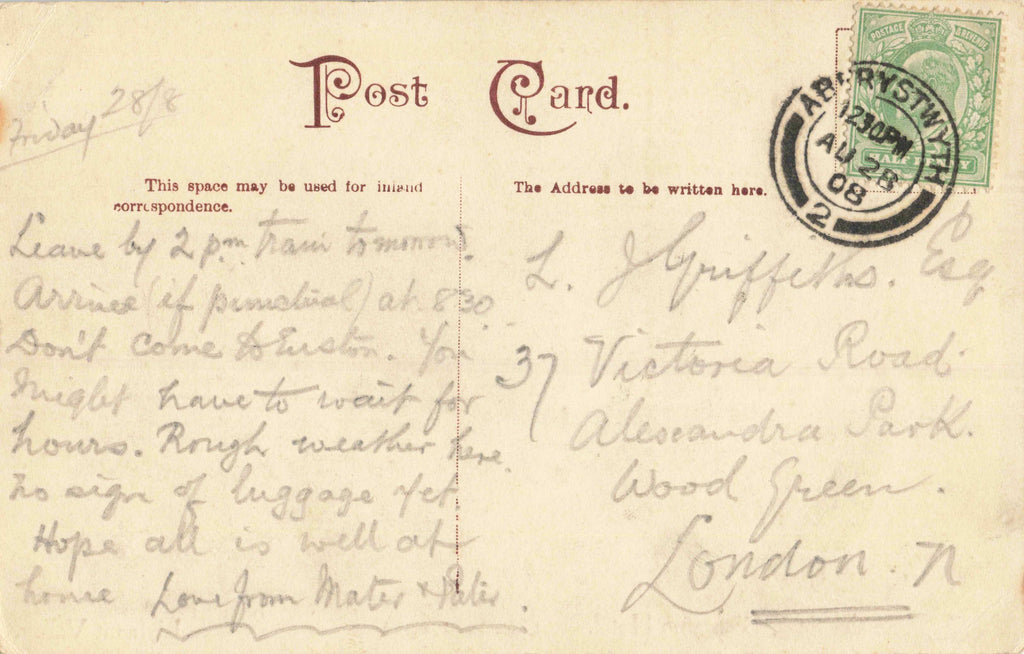 Post Card.
POSTAGE & REVENUE
HALF PENNY
ABERYSTWYTH
1230PM
AU 28
08
2
Friday 28/8
This space may be used for inland
correspondence.
The Address to be written here.
Leave by 2 pm train tomorrow.
Arrive (if punctual) at 8.30
Don't come to Euston. You
might have to wait for
hours. Rough weather here.
No sign of luggage yet.
Hope all is well at
home Love from Mater & Pater.
L. J Griffiths. Esq
37 Victoria Road.
Alexandra Park.
Wood Green.
London. N